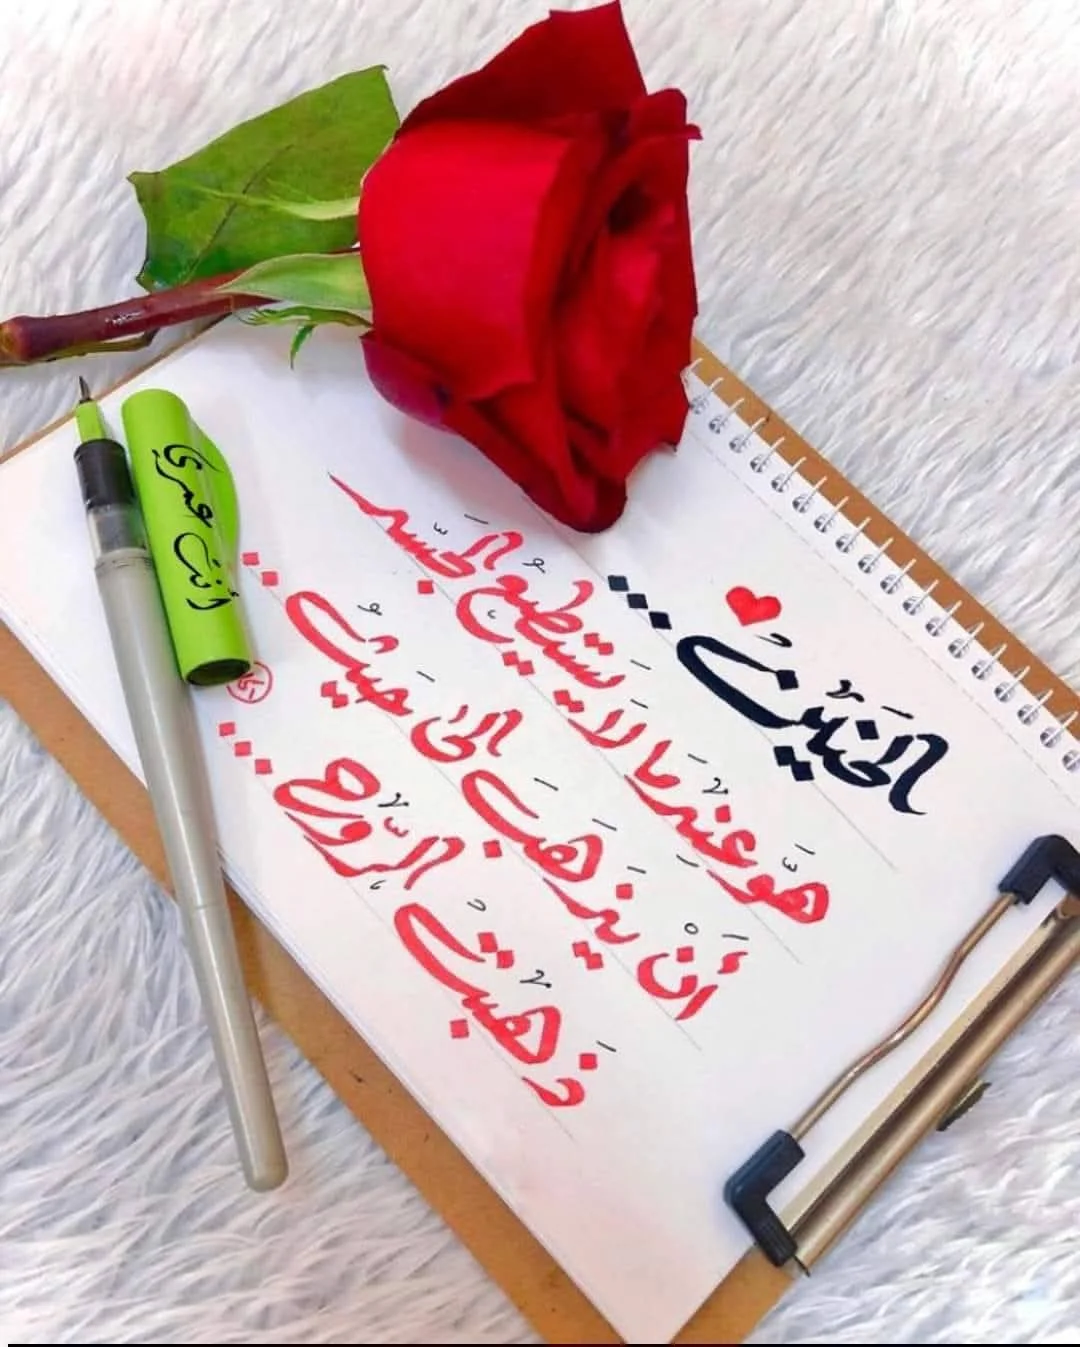 الحَنينُ...
هوَّ عِندَما لَا يَستَطيعُ الجَسَد
أَنْ يَذهَبَ الىٰ حَيثُ..
ذَهبَتُ الرَّوح...
أنت عمري